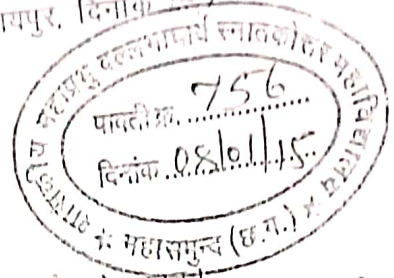 यपुर, दिनांक
शासकीय महाप्रभु वल्लभाचार्य स्नातकोत्तर महाविद्यालय
पावती क्र. 756
दिनांक 08/01/15
महासमुन्द (छ.ग.)